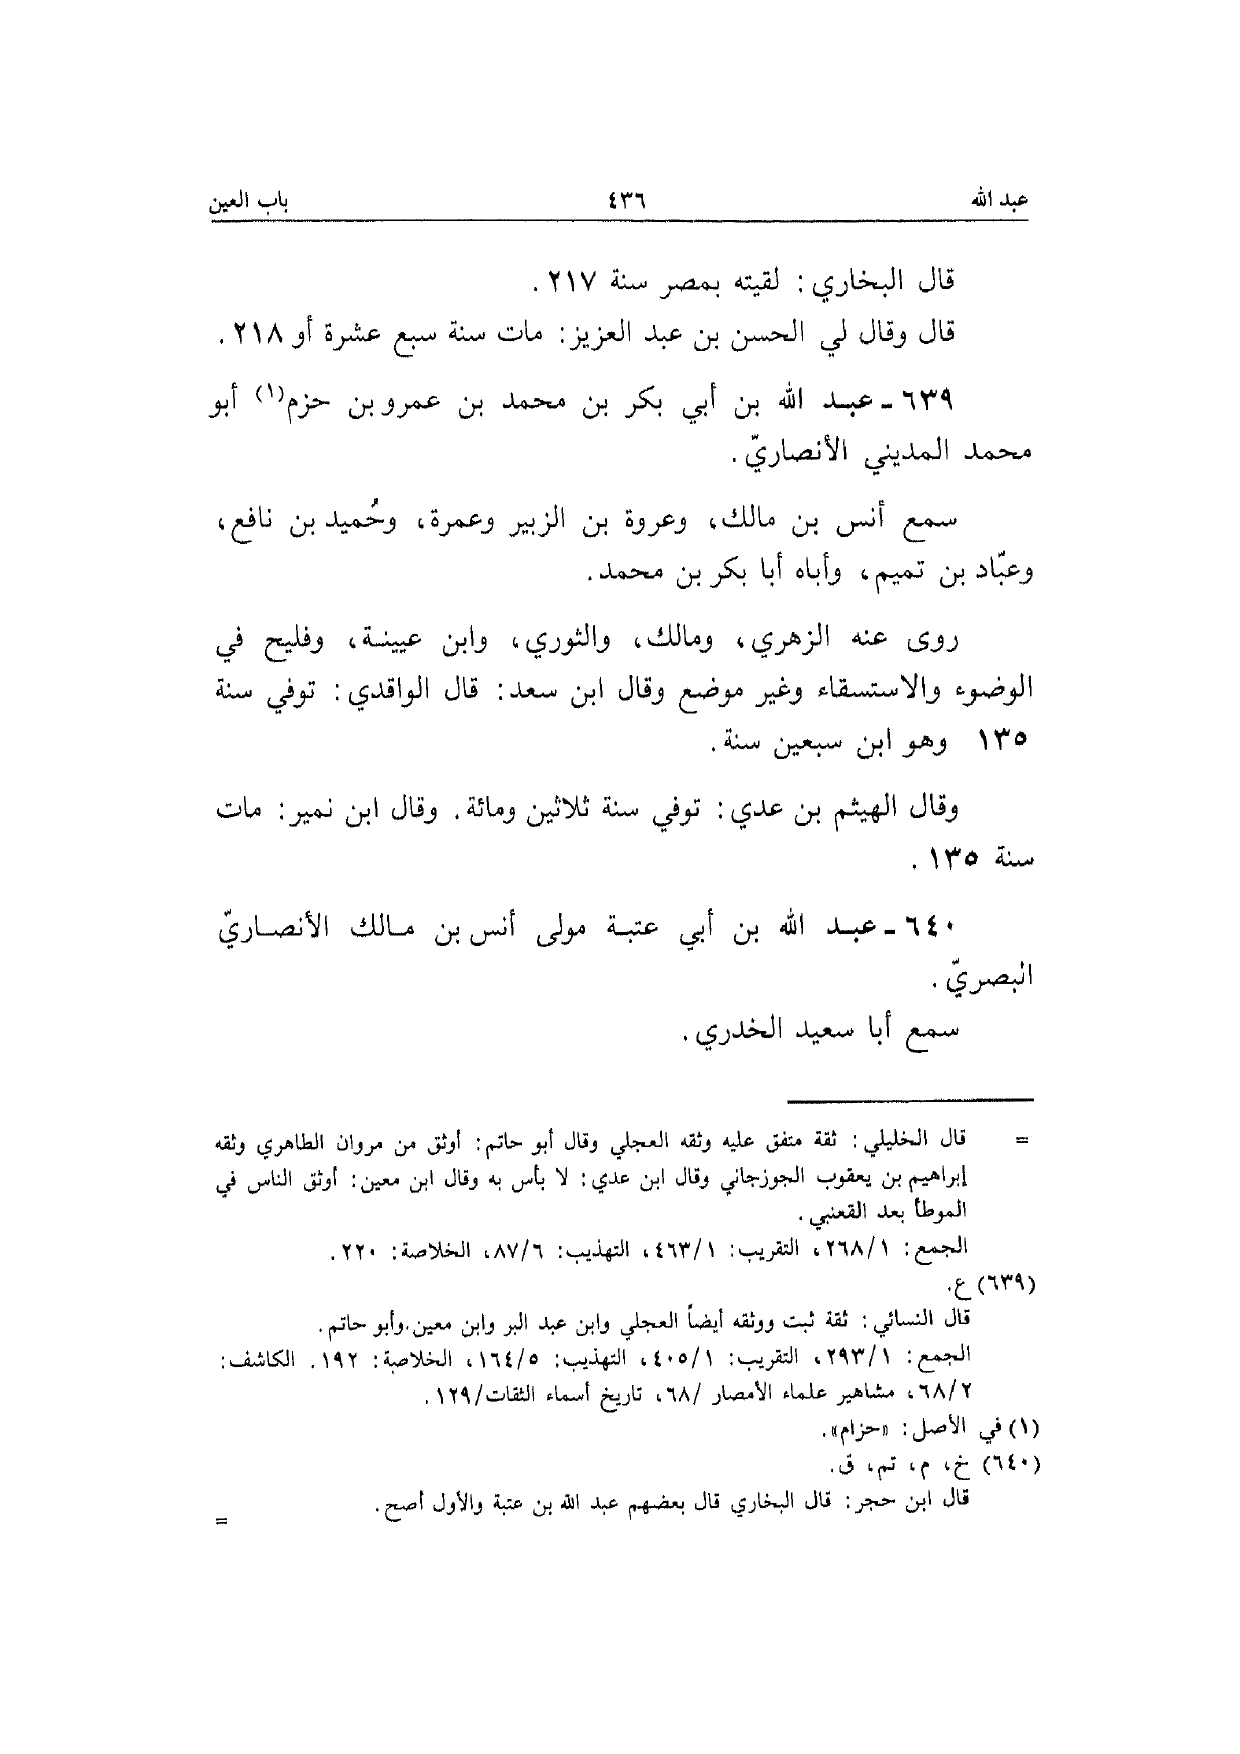 عبد الله ٤٣٦ باب العين
قال البخاري: لقيته بمصر سنة ٢١٧.
قال وقال لي الحسن بن عبد العزيز: مات سنة سبع عشرة أو ٢١٨.
٦٣٩ ـ عبد الله بن أبي بكر بن محمد بن عمرو بن حزم(١) أبو
محمد المديني الأنصاريّ.
سمع أنس بن مالك، وعروة بن الزبير وعمرة، وحُميد بن نافع،
وعبّاد بن تميم، وأباه أبا بكر بن محمد.
روى عنه الزهري، ومالك، والثوري، وابن عيينة، وفليح في
الوضوء والاستسقاء وغير موضع وقال ابن سعد: قال الواقدي: توفي سنة
١٣٥ وهو ابن سبعين سنة.
وقال الهيثم بن عدي: توفي سنة ثلاثين ومائة. وقال ابن نمير: مات
سنة ١٣٥.
٦٤٠ ـ عبد الله بن أبي عتبة مولى أنس بن مالك الأنصاريّ
البصريّ.
سمع أبا سعيد الخدري.
= قال الخليلي: ثقة متفق عليه وثقه العجلي وقال أبو حاتم: أوثق من مروان الطاهري وثقه
إبراهيم بن يعقوب الجوزجاني وقال ابن عدي: لا بأس به وقال ابن معين: أوثق الناس في
الموطأ بعد القعنبي.
الجمع: ٢٦٨/١، التقريب: ٤٦٣/١، التهذيب: ٨٧/٦، الخلاصة: ٢٢٠.
(٦٣٩) ع.
قال النسائي: ثقة ثبت ووثقه أيضاً العجلي وابن عبد البر وابن معين.وأبو حاتم.
الجمع: ٢٩٣/١، التقريب: ٤٠٥/١، التهذيب: ١٦٤/٥، الخلاصة: ١٩٢. الكاشف:
٦٨/٢، مشاهير علماء الأمصار /٦٨، تاريخ أسماء الثقات/١٢٩.
(١) في الأصل: «حزام».
(٦٤٠) خ، م، تم، ق.
قال ابن حجر: قال البخاري قال بعضهم عبد الله بن عتبة والأول أصح.
=